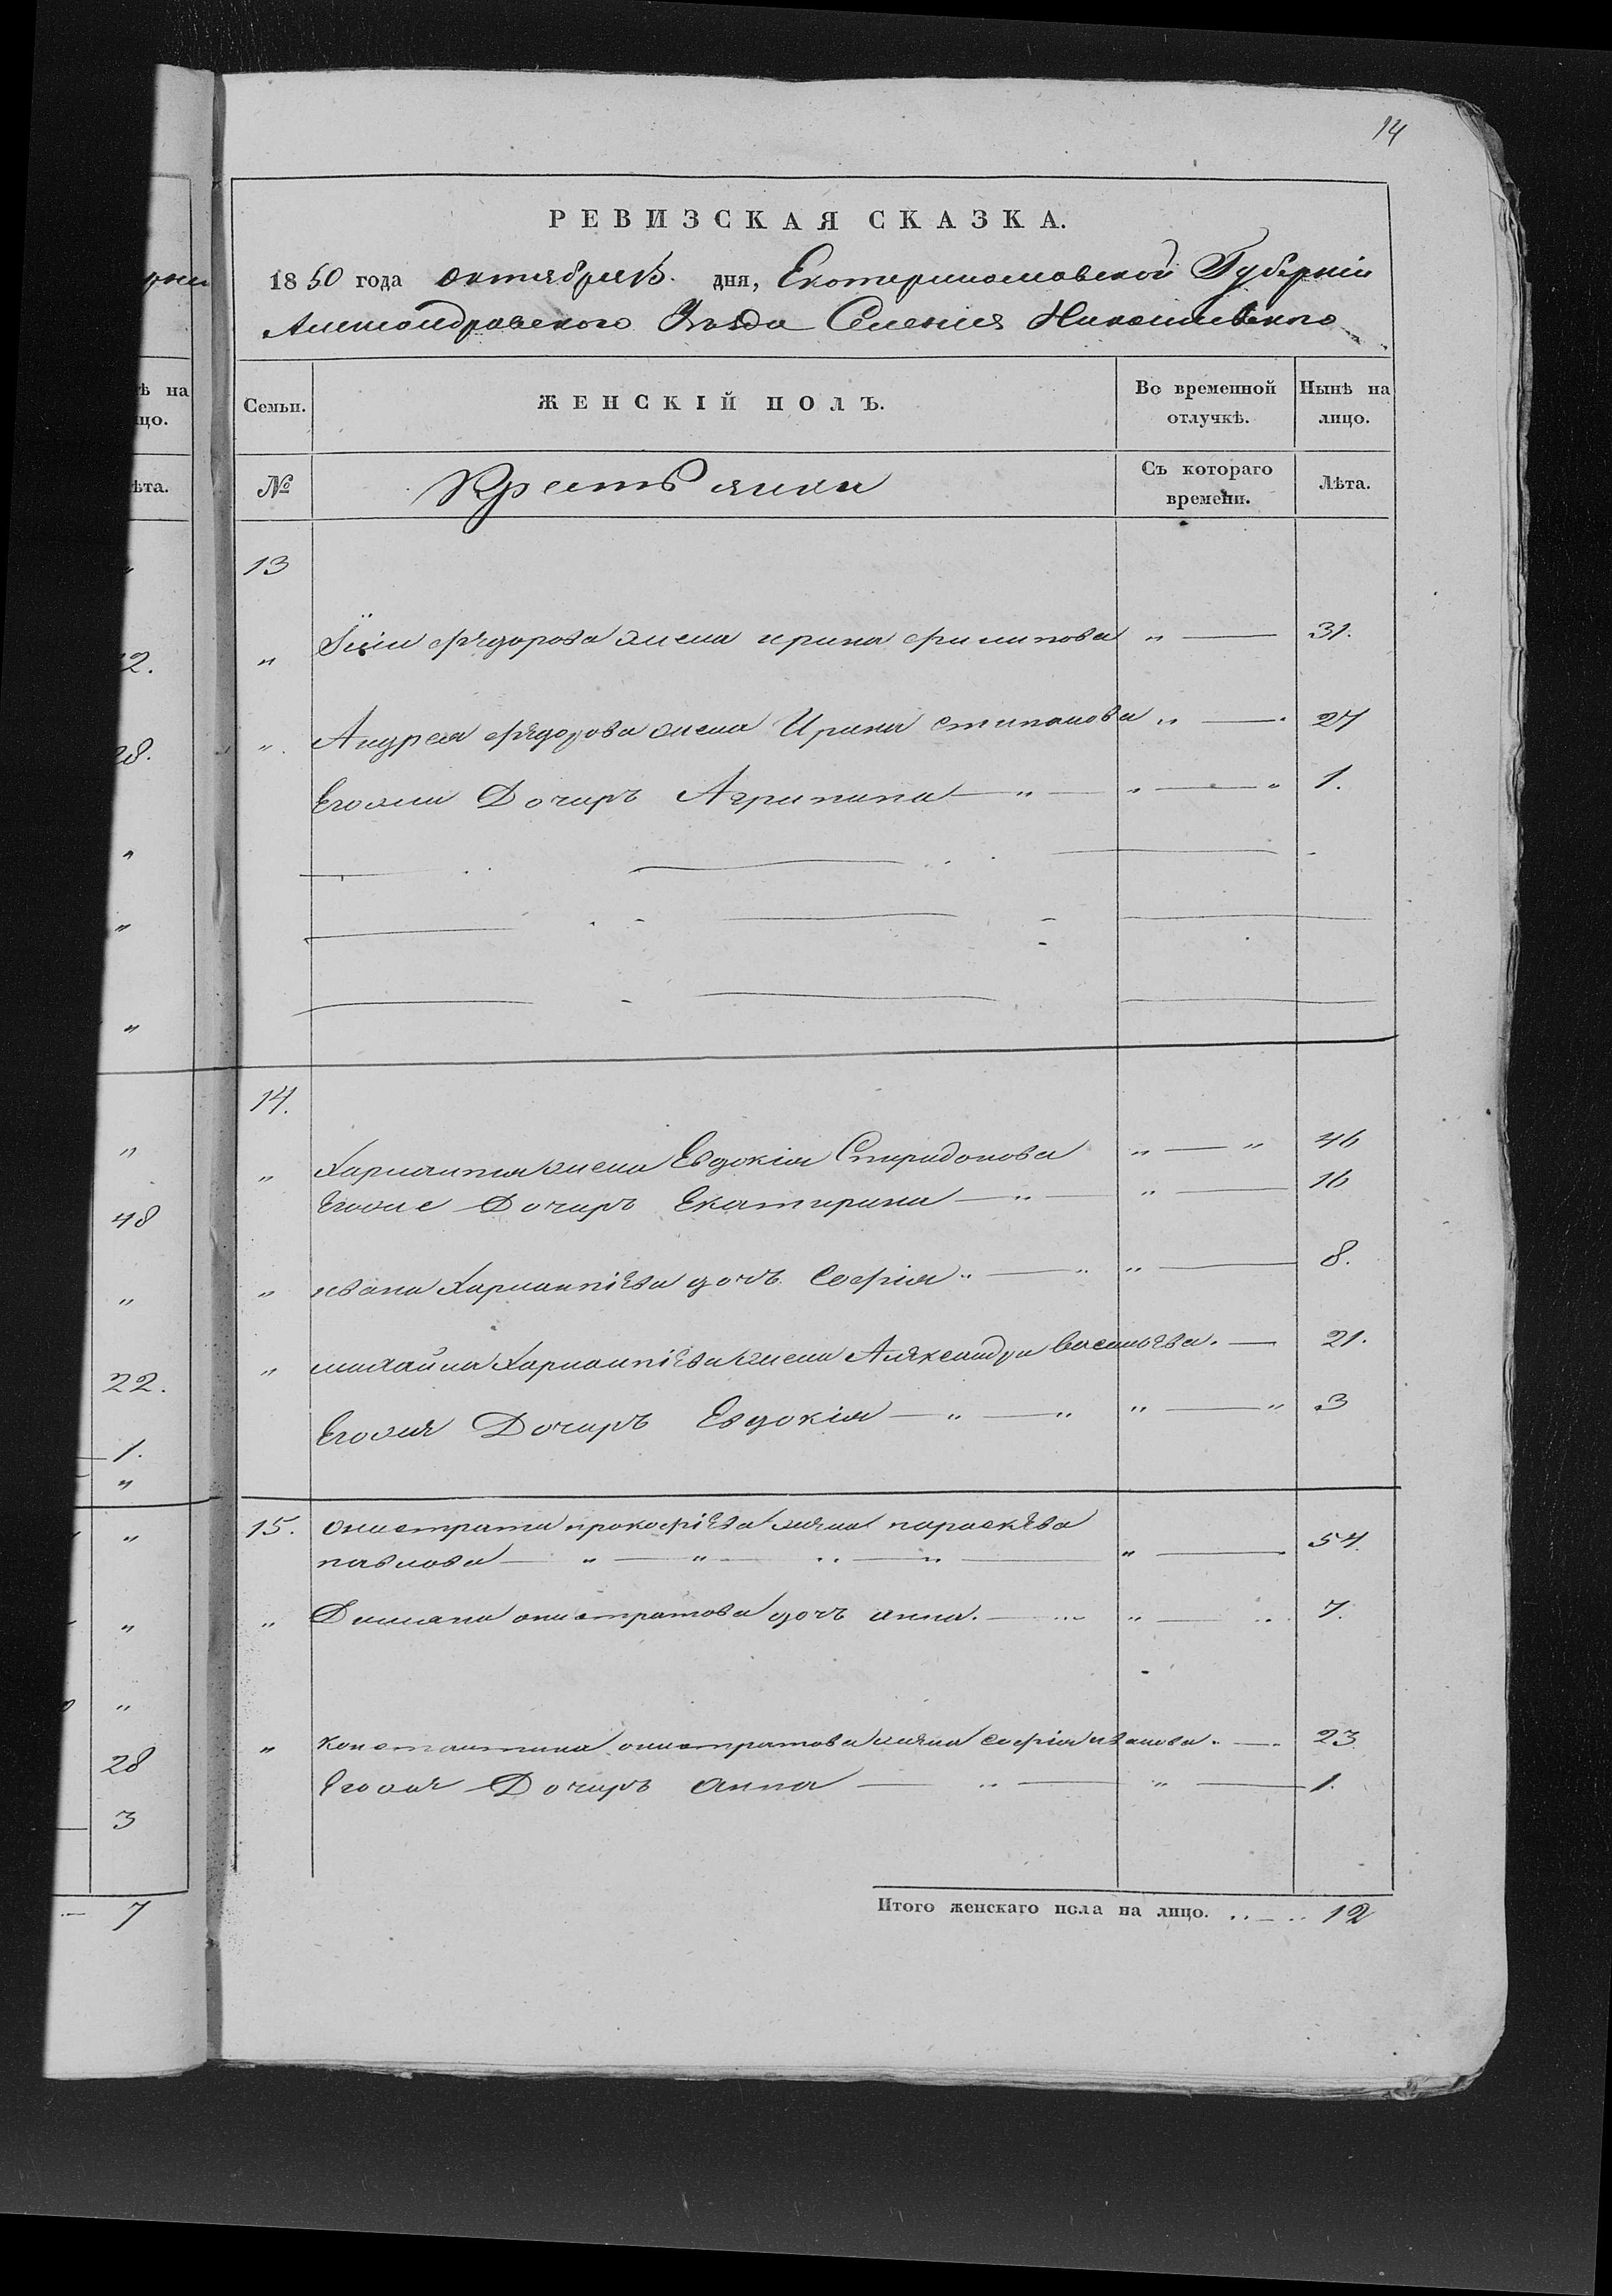 14
РЕВИЗСКАЯ СКАЗКА.
1850 года октября 15. дня, Екатеринославской Губерніи
Александровского Уѣзда Селенія Николаевского
Семьи. ЖЕНСКІЙ ПОЛЪ. Во временной отлучкѣ. Нынѣ на лицо.
№ Крестьянки Съ котораго времени. Лѣта.
13
" Ѳедорова жена ирина филипова " — 31.
" Андрея Фѣдорова жена Ирина степанова " — 27
Егожа Дочиръ Агрипина — " — " — " 1.
14.
" Харлампия жена Евдокія Спиридонова " — " 46
Егоже Дочиръ Екатирина — " " — 16
" ивана Харлампіѣва дочъ Софія " — " " — 8.
" михайла Харлампіѣва жена Александра Васильѣва. — 21.
Егожя Дочиръ Евдокія — " — " " — " 3
15. онистрата прокофіѣва жяна параскѣва
павлова — " — " — " — " — " — 54.
" Димяна онистратова дочъ анна. — " " — " 7.
" константина онистратова жяна софія иванова. — 23
Егожя Дочиръ анна — " — " — 1.
Итого женскаго пола на лицо. 12
ѣ на
цо.
ѣта.
2.
28.
48
22.
1.
28
3
7